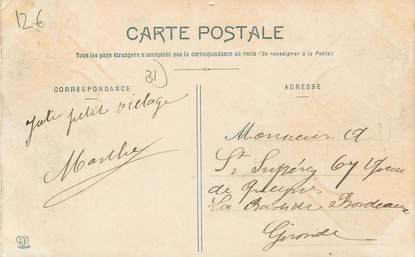 12.6
CARTE POSTALE
Tous les pays étrangers n'acceptent pas la correspondance au recto (Se renseigner à la Poste)
31
CORRESPONDANCE
Joli petit village
Marthe
ADRESSE
Monsieur A
St 67
de
La Bastide Bordeaux
Gironde